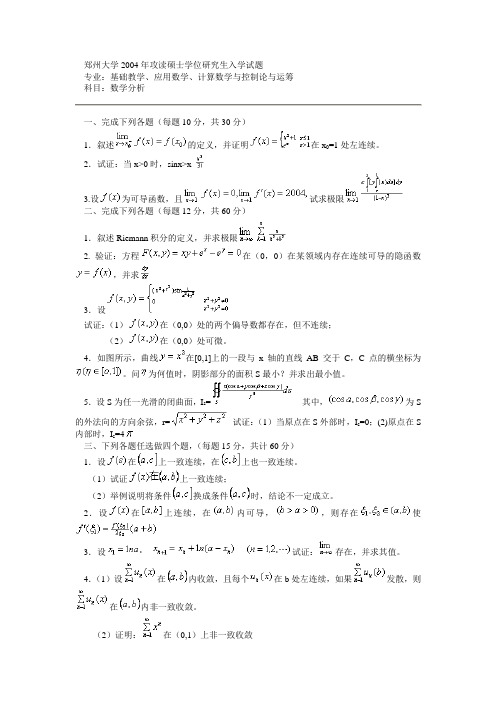 郑州大学 2004 年攻读硕士学位研究生入学试题
专业：基础教学、应用数学、计算数学与控制论与运筹
科目：数学分析
一、完成下列各题（每题 10 分，共 30 分）
1．叙述 lim f(x)=f(x₀) 的定义，并证明 f(x)= 在 x₀=1 处左连续。
2．试证：当 x>0 时，sinx>x
3.设 f(x) 为可导函数，且 lim f(x)=0, lim f'(x)=2004, 试求极限 lim
二、完成下列各题（每题 12 分，共 60 分）
1．叙述 Riemann 积分的定义，并求极限 lim Σ
2. 验证：方程 F(x,y)=xy+eˣ-eʸ=0 在（0，0）在某领域内存在连续可导的隐函数
y=f(x)，并求 dy/dx
3．设 f(x,y)=
试证：（1） f(x,y) 在(0,0)处的两个偏导数都存在，但不连续；
（2） f(x,y) 在(0,0)处可微。
4．如图所示，曲线 y=x² 在[0,1]上的一段与 x 轴的直线 AB 交于 C，C 点的横坐标为
η(η∈[0,1])。问 η 为何值时，阴影部分的面积 S 最小？并求出最小值。
5．设 S 为任一光滑的闭曲面，I₅= 其中， (cosα,cosβ,cosγ) 为 S
的外法向的方向余弦，r=√x²+y²+z² 试证：(1）当原点在 S 外部时，I₅=0；(2)原点在 S
内部时，I₅=4π
三、下列各题任选做四个题，（每题 15 分，共计 60 分）
1．设 f(x) 在 (a,c] 上一致连续，在 [c,b) 上也一致连续。
（1）试证 f(x)在(a,b) 上一致连续；
（2）举例说明将条件 (a,c] 换成条件 (a,c) 时，结论不一定成立。
2．设 f(x) 在 [a,b] 上连续，在 (a,b) 内可导， (b>a>0) ，则存在 ξ₁,ξ₂∈(a,b) 使
3．设 x₁=lna， xₙ₊₁=xₙ+ln(a-xₙ) (n=1,2,⋯) 试证： lim 存在，并求其值。
4．(1）设 Σuₙ(x) 在 (a,b) 内收敛，且每个 uₙ(x) 在 b 处左连续，如果 Σuₙ(b) 发散，则
Σuₙ(x) 在 (a,b) 内非一致收敛。
（2）证明： Σxⁿ 在（0,1）上非一致收敛